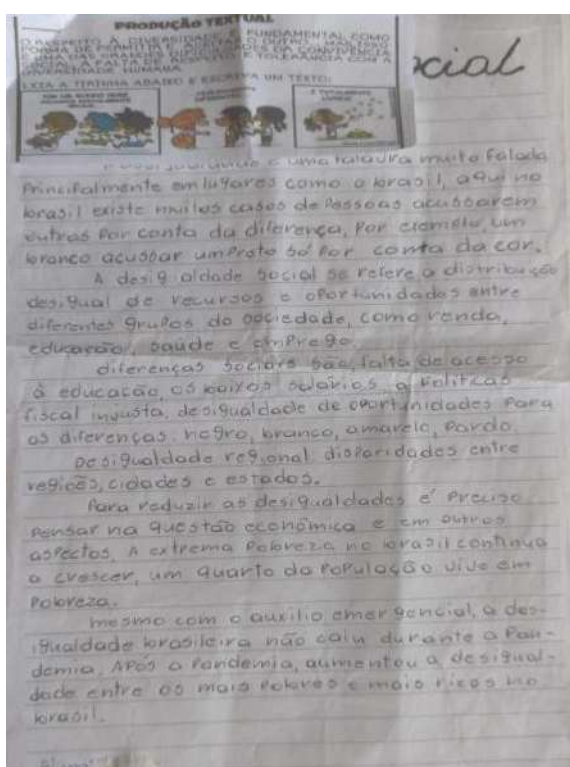 PRODUÇÃO TEXTUAL
O RESPEITO À DIVERSIDADE É FUNDAMENTAL COMO
FORMA DE PERMITIR E ACEITAR O OUTRO. MAS ISSO
É UMA DAS GRANDES DIFICULDADES DA CONVIVÊNCIA
SOCIAL A FALTA DE RESPEITO E TOLERÂNCIA COM A
DIVERSIDADE HUMANA.
LEIA A TIRINHA ABAIXO E ESCREVA UM TEXTO:
ocial
é uma palavra muito falada
Principalmente em lugares como o brasil, aqui no
brasil existe muitos casos de Pessoas acussarem
outras Por conta da diferença, Por exemplo, um
branco acussar um Preto só Por conta da cor.
A desigoldade social se refere a distribuição
desigual de recursos e oPortunidades entre
diferentes grupos do sociedade, como renda,
educação, saúde e emPrego.
diferenças sociais são, falta de acesso
à educação, os baixos salarios, a Politicas
fiscal injusta, desigualdade de oportunidades Para
as diferenças: negro, branco, amarelo, Pardo.
Desigualdade regional disparidades entre
regiões, cidades e estados.
Para reduzir as desigualdades é Preciso
Pensar na questão econômica e em outros
asPectos. A extrema Pobreza no brasil continua
a crescer, um quarto da PoPulação vive em
Pobreza.
mesmo com o auxilio emergencial, a des-
igualdade brasileira não caiu durante a Pan-
demia. APós a Pandemia, aumentou a desigual-
dade entre os mais Pobres e mais ricos no
brasil.